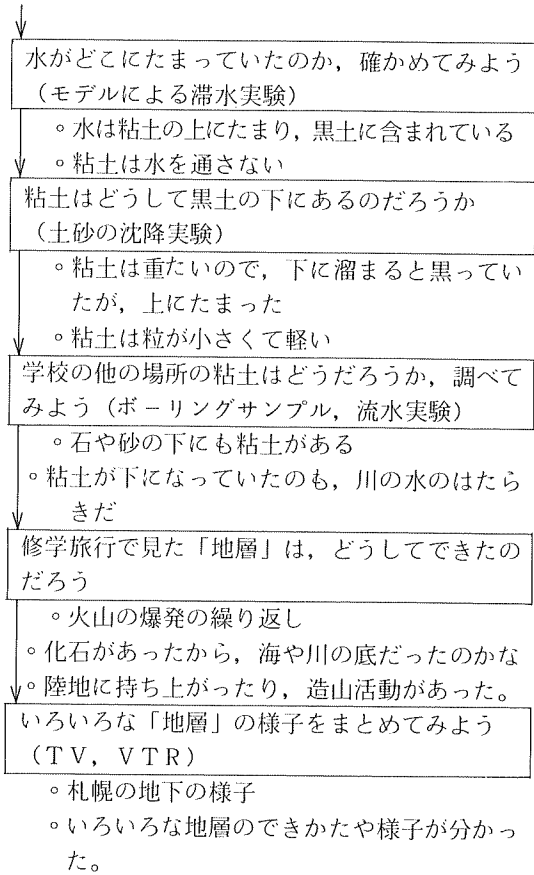 水がどこにたまっていたのか，確かめてみよう
（モデルによる滞水実験）
∘水は粘土の上にたまり，黒土に含まれている
∘粘土は水を通さない
粘土はどうして黒土の下にあるのだろうか
（土砂の沈降実験）
∘粘土は重たいので，下に溜まると黒ってい
たが，上にたまった
∘粘土は粒が小さくて軽い
学校の他の場所の粘土はどうだろうか，調べて
みよう（ボーリングサンプル，流水実験）
∘石や砂の下にも粘土がある
∘粘土が下になっていたのも，川の水のはたら
きだ
修学旅行で見た「地層」は，どうしてできたの
だろう
∘火山の爆発の繰り返し
∘化石があったから，海や川の底だったのかな
∘陸地に持ち上がったり，造山活動があった。
いろいろな「地層」の様子をまとめてみよう
（ＴＶ，ＶＴＲ）
∘札幌の地下の様子
∘いろいろな地層のできかたや様子が分かっ
た。